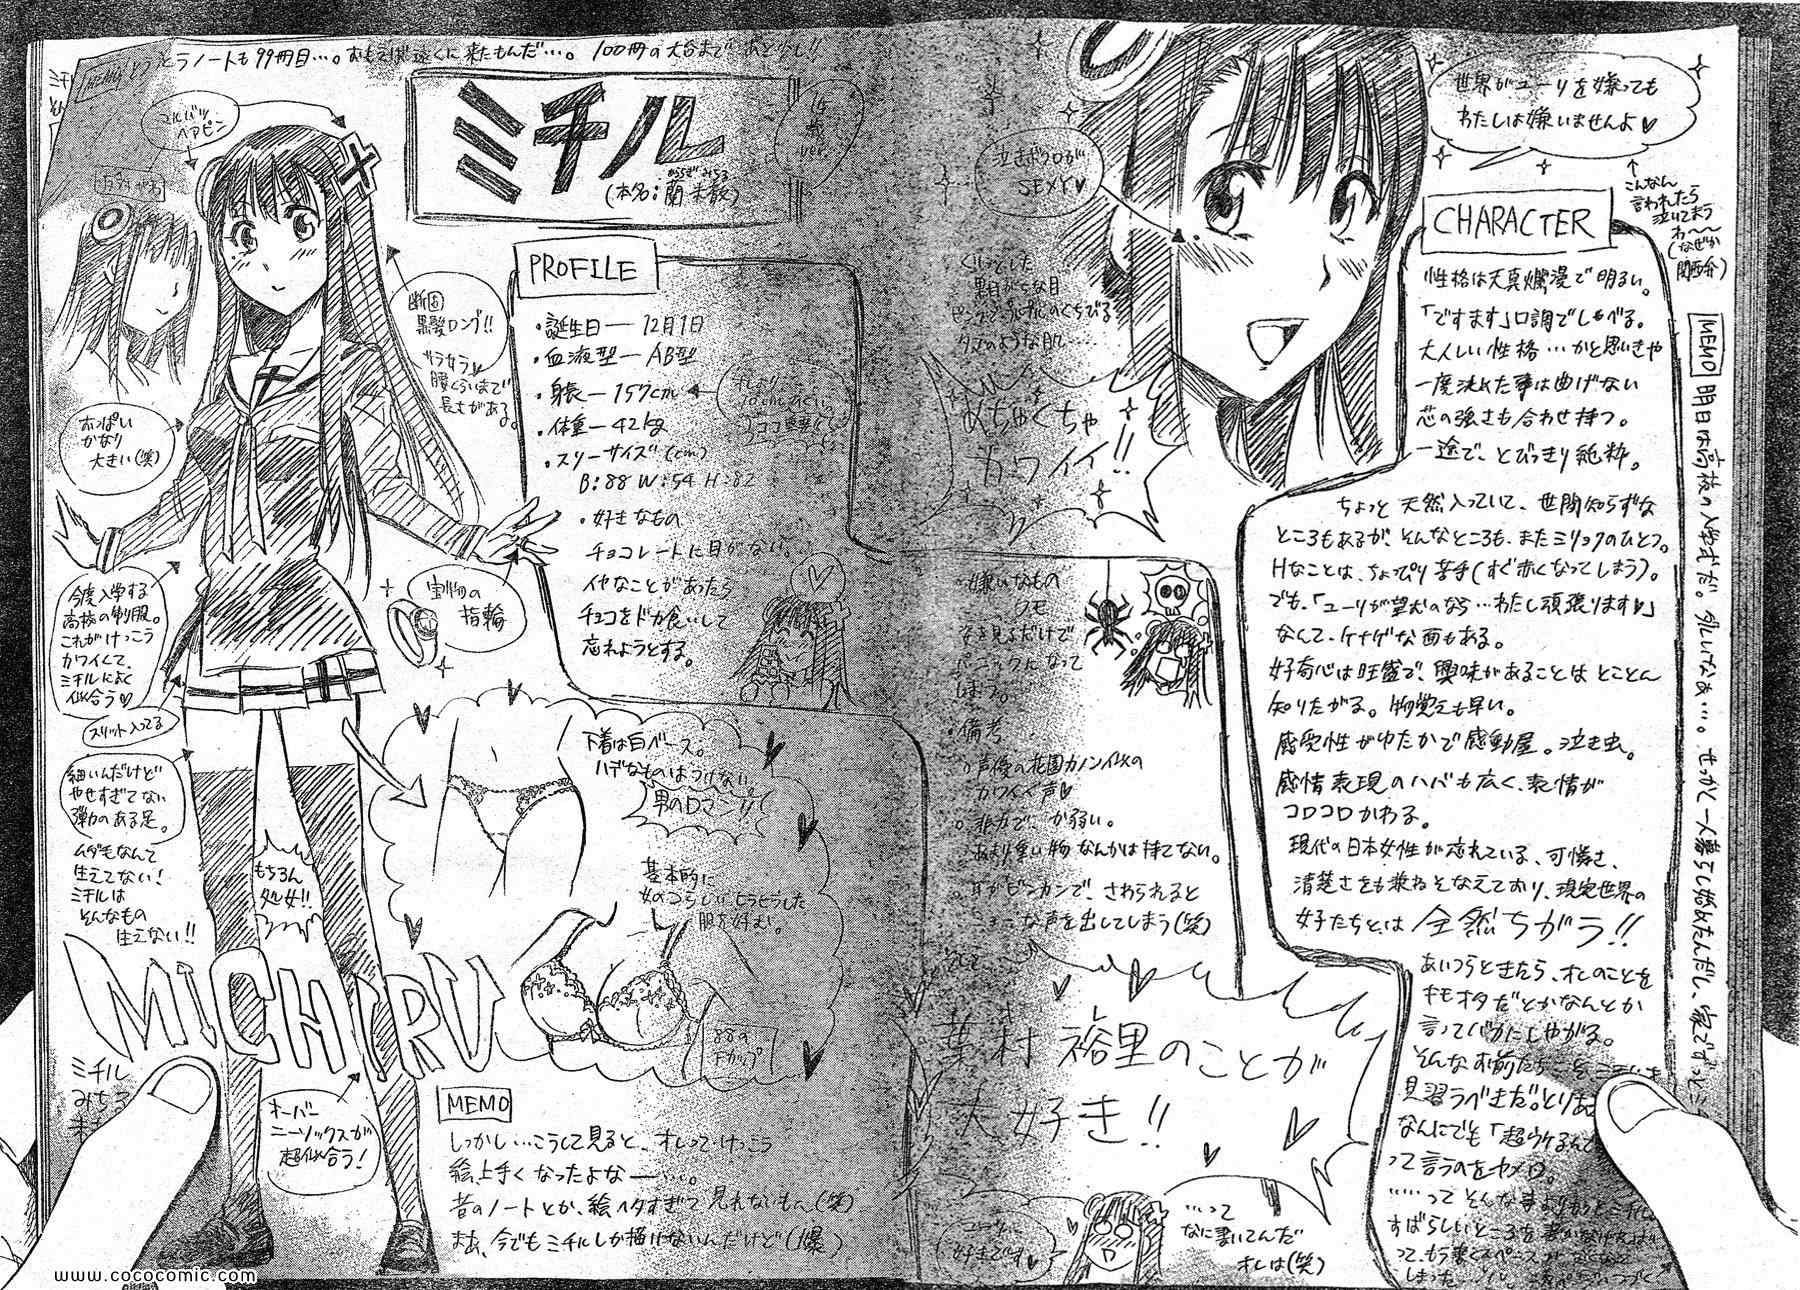 とうとうノートも99冊目…。おもえば遠くに来たもんだ…。100冊の大台まであと少し!!
ミチル
(本名:蘭 未散)
あららぎ みちる
マルバツ
ヘアピン
断固
黒髪ロング!!
腰くらいまで
長さがある。
おっぱい
かなり
大きい(笑)
今度入学する
高校の制服。
これがけっこう
カワイくて、
ミチルによく
似合う♡
スリット入ってる
細いんだけど
やせすぎてない
弾力のある足。
ムダ毛なんて
生えてない!
ミチルは
そんなもの
生えない!!
宝物の
指輪
もちろん
処女!!
MICHIRU
ミチル
みちる
オーバー
ニーソックスが
超似合う!
PROFILE
・誕生日— 12月1日
・血液型— AB型
・身長— 157cm
・体重— 42kg
・スリーサイズ(cm)
B:88 W:54 H:82
・好きなもの
チョコレートに目がない。
イヤなことがあったら
チョコをドカ食いして
忘れようとする。
下着は白ベース。
ハデなものはつけない
男のロマン!!
基本的に
女のコらしいヒラヒラした
服を好む。
88の
Fカップ
MEMO
しっかし…こうして見ると、オレってけっこう
絵上手くなったよな——…。
昔のノートとか、絵ヘタすぎて見れないもん(笑)
まあ、今でもミチルしか描けないんだけど(爆)
泣きボクロが
SEXY♡
世界がユーリを嫌っても
わたしは嫌いませんよ♡
こんなん
言われたら
泣いてまう
わ〜〜
(なぜか
関西弁)
くりっとした
黒目がちな目
めちゃくちゃ
カワイイ!!
・嫌いなもの
クモ
姿を見るだけで
パニックになって
しまう。
・備考
○声優の花園カノン似の
カワイイ声♡
○非力で、か弱い。
あまり重い物なんかは持てない。
○耳がビンカンで、さわられると
声を出してしまう(笑)
葉村裕里のことが
大好き!!
……って
なに書いてんだ
オレは(笑)
CHARACTER
性格は天真爛漫で明るい。
「ですます」口調でしゃべる。
大人しい性格…かと思いきや
一度決めた事は曲げない
芯の強さも合わせ持つ。
一途で、とびっきり純粋。
ちょっと天然入っていて、世間知らずな
ところもあるが、そんなところも、またミリョクのひとつ。
Hなことは、ちょっぴり苦手(すぐ赤くなってしまう)。
でも、「ユーリが望むのなら…わたし頑張ります♡」
なんて、ケナゲな面もある。
好奇心は旺盛で、興味があることはとことん
知りたがる。物覚えも早い。
感受性がゆたかで感動屋。泣き虫。
感情表現のハバも広く、表情が
コロコロかわる。
現代の日本女性が忘れている、可憐さ、
清楚さをも兼ねそなえており、現実世界の
女子たちとは全然ちがう!!
あいつらときたら、オレのことを
キモオタだとかなんとか
言ってバカにしやがる。
そんなお前たちこそ
見習うべきだ。とりあ
なんにでも「超ウケるんで
って言うのをヤメロ。
MEMO 明日は高校の入学式だ。ダルいなぁ…。せっかく一人暮らし始めたんだし、家でずっと
www.cococomic.com